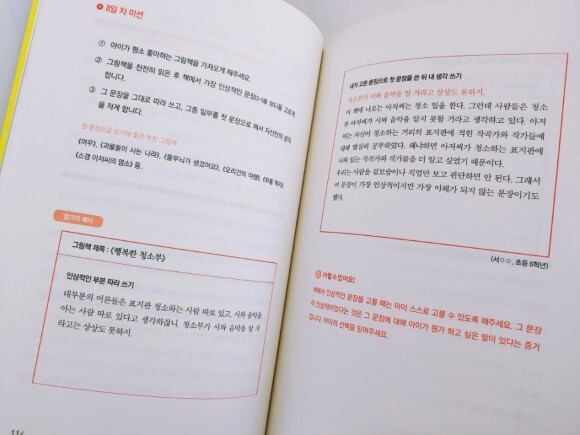 8일 차 미션
① 아이가 평소 좋아하는 그림책을 가져오게 해주세요.
② 그림책을 천천히 읽은 후 책에서 가장 인상적인 문장(1~3줄 정도)을 고르게
합니다.
③ 그 문장을 그대로 따라 쓰고, 그중 일부를 첫 문장으로 해서 자신만의 생각
을 적게 합니다.
첫 문장으로 쓰기에 좋은 추천 그림책
《여우》, 《괴물들이 사는 나라》, 《줄무늬가 생겼어요》, 《오리건의 여행》,
《스갱 아저씨의 염소》 등.
글쓰기 예시
그림책 제목 : 《행복한 청소부》
인상적인 부분 따라 쓰기
대부분의 어른들은 표지판 청소하는 사람 따로 있고, 시와 음악을
아는 사람 따로 있다고 생각하잖니. 청소부가 시와 음악을 알 거
라고는 상상도 못하지.
내가 고른 문장으로 첫 문장을 쓴 뒤 내 생각 쓰기
청소부가 시와 음악을 알 거라고 상상도 못하지.
이 책에 나오는 아저씨는 청소 일을 한다. 그런데 사람들은 청소
부 아저씨가 시와 음악을 알지 못할 거라고 생각하고 있다. 아저
씨는 자신이 청소하는 거리의 표지판에 적힌 작곡가와 작가들에
대해 열심히 공부하였다. 왜냐하면 아저씨가 청소하는 표지판에
나와 있는 작곡가와 작가들을 더 알고 싶었기 때문이다.
우리는 사람을 겉모습이나 직업만 보고 판단하면 안 된다. 그래서
이 문장이 가장 인상적이지만 가장 이해가 되지 않는 문장이기도
했다.
(서○○, 초등 6학년)
이렇게 있어요!
책에서 인상적인 문장을 고를 때는 아이 스스로 고를 수 있도록 해주세요. 그 문장
이 인상적이었다는 것은 그 문장에 대해 아이가 뭔가 하고 싶은 말이 있다는 증거
입니다. 아이의 선택을 믿어주세요.